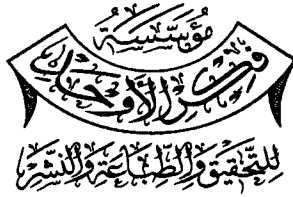 مُؤَسَّسَة
فِكْر الأَوحَد
لِلتَّحْقِيقِ وَالطِّبَاعَةِ وَالنَّشْرِ